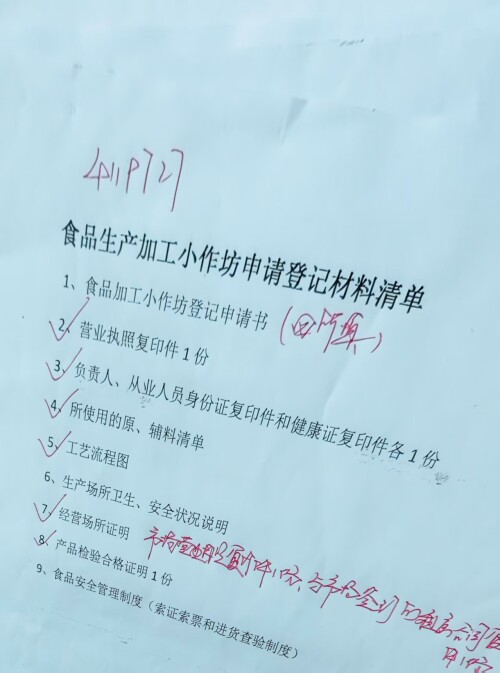 4119727
食品生产加工小作坊申请登记材料清单
1、食品加工小作坊登记申请书 (回所填)
2、营业执照复印件1份
3、负责人、从业人员身份证复印件和健康证复印件各1份
4、所使用的原、辅料清单
5、工艺流程图
6、生产场所卫生、安全状况说明
7、经营场所证明 市场营业执照复印件1份、与市场签订的租房合同复
印1份
8、产品检验合格证明1份
9、食品安全管理制度(索证索票和进货查验制度)